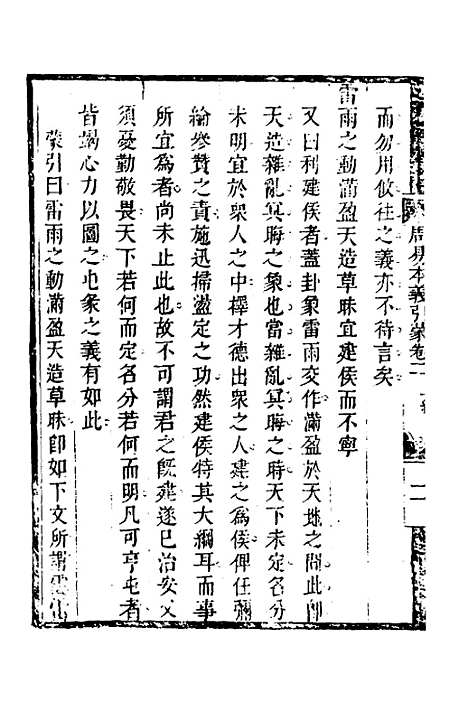 周易本義引蒙卷二
二
而勿用攸往之義亦不待言矣
雷雨之動滿盈天造草昧宜建侯而不寧
又曰利建侯者蓋卦象雷雨交作滿盈於天地之間此卽
天造雜亂冥晦之象也當雜亂冥晦之時天下未定名分
未明宜於衆人之中擇才德出衆之人建之為侯俾任彌
綸參贊之責施迅掃盪定之功然建侯特其大綱耳而事
所宜為者尚未止此也故不可謂君之旣建遂已治安又
須憂勤敬畏天下若何而定名分若何而明凡可亨屯者
皆竭心力以圖之屯彖之義有如此
蒙引曰雷雨之動滿盈天造草昧卽如下文所謂